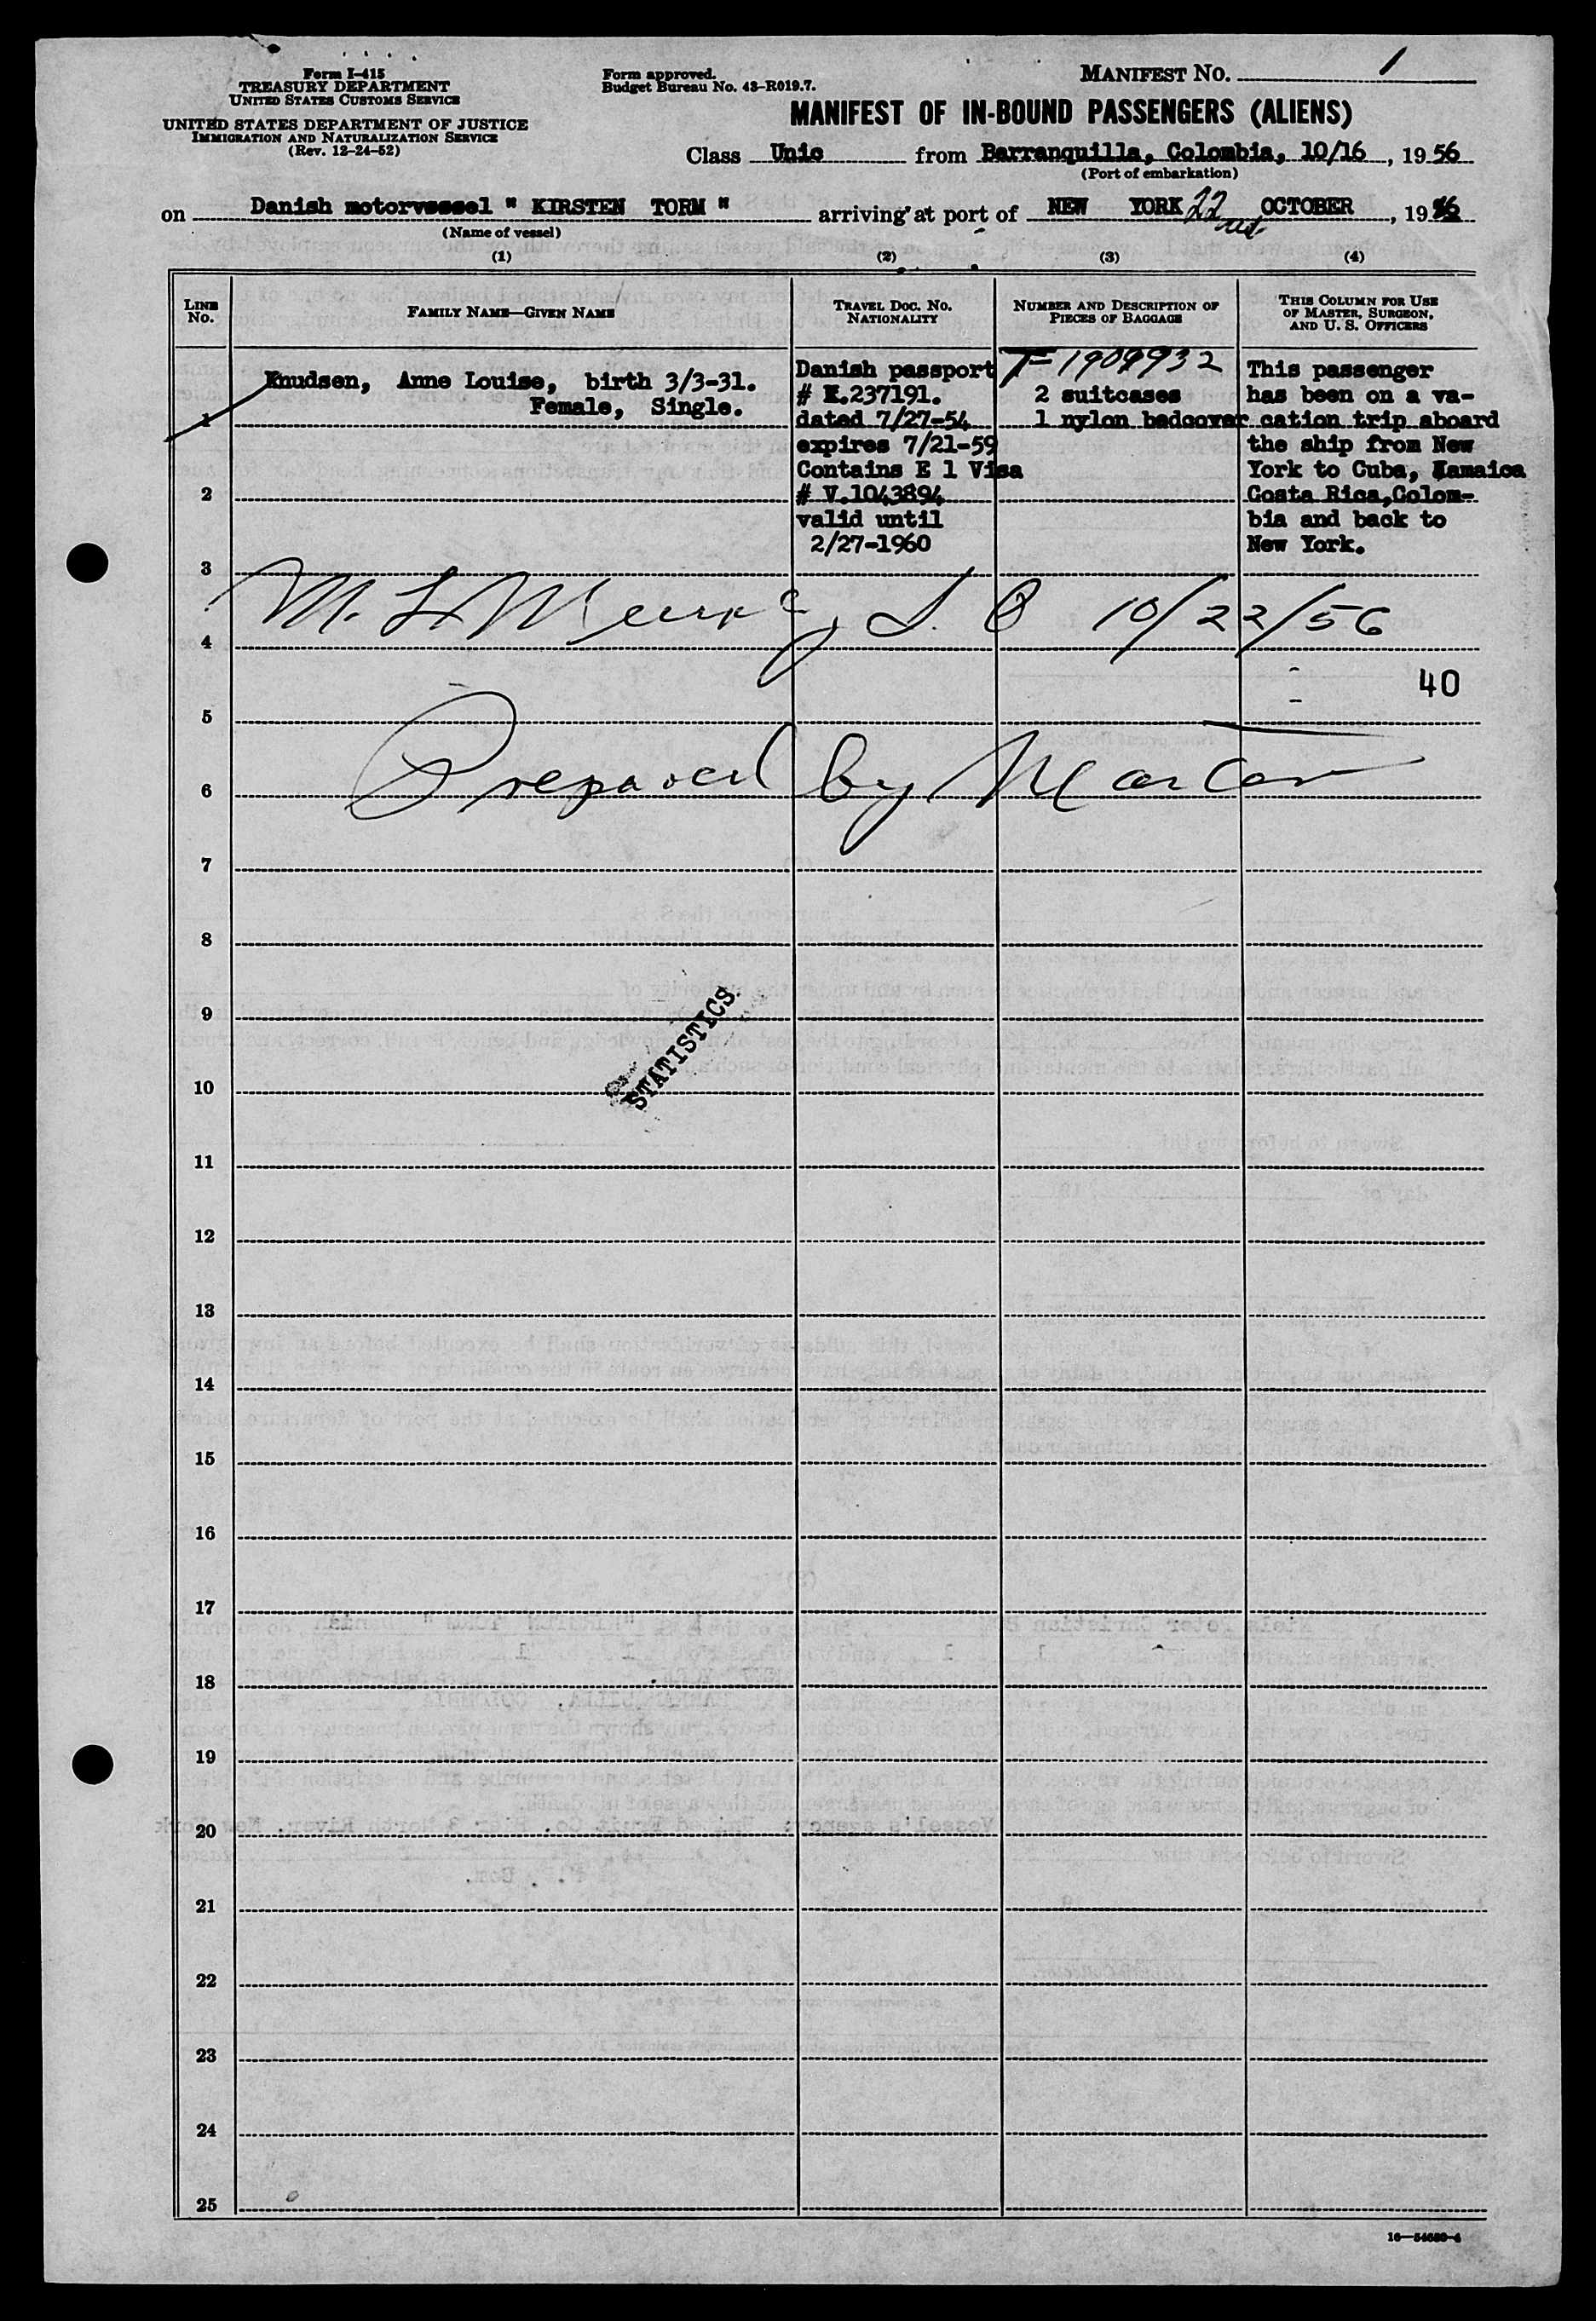 Form I-415
TREASURY DEPARTMENT
UNITED STATES CUSTOMS SERVICE
UNITED STATES DEPARTMENT OF JUSTICE
IMMIGRATION AND NATURALIZATION SERVICE
(Rev. 12-24-52)
Form approved.
Budget Bureau No. 43-R019.7.
MANIFEST NO. 1
MANIFEST OF IN-BOUND PASSENGERS (ALIENS)
Class Unic from Barranquilla, Colombia, 10/16, 1956
(Port of embarkation)
on Danish motorvessel " KIRSTEN TORM " arriving at port of NEW YORK 22 nd OCTOBER, 1956
(Name of vessel)
(1) (2) (3) (4)
LINE NO.
FAMILY NAME—GIVEN NAME
TRAVEL DOC. NO. NATIONALITY
NUMBER AND DESCRIPTION OF PIECES OF BAGGAGE
THIS COLUMN FOR USE OF MASTER, SURGEON, AND U. S. OFFICERS
1
Knudsen, Anne Louise, birth 3/3-31.
Female, Single.
Danish passport
# K.237191.
dated 7/27-54
expires 7/21-59
Contains E 1 Visa
# V.1043894
valid until
2/27-1960
F-1909932
2 suitcases
1 nylon bedcover
This passenger
has been on a va-
cation trip aboard
the ship from New
York to Cuba, Jamaica
Costa Rica, Colom-
bia and back to
New York.
2
3
10/22/56
4
40
5
Prepared by
6
7
8
9
STATISTICS
10
11
12
13
14
15
16
17
18
19
20
21
22
23
24
25